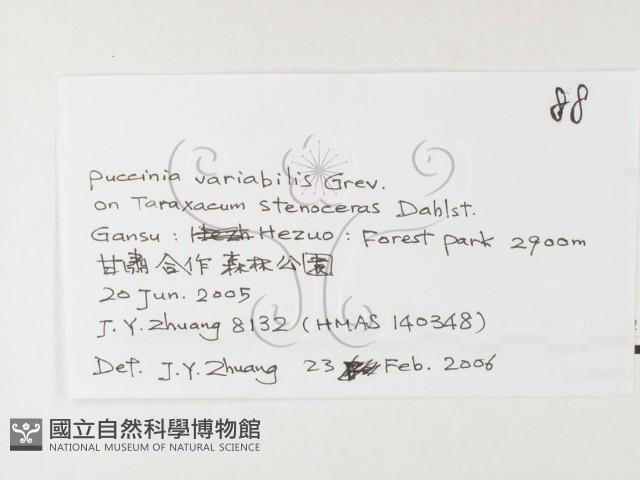 88
Puccinia variabilis Grev.
on Taraxacum stenoceras Dahlst.
Gansu : Hezuo : Forest park 2900m
甘肅 合作 森林公園
20 Jun. 2005
J. Y. Zhuang 8132 (HMAS 140348)
Det. J. Y. Zhuang 23 Feb. 2006
國立自然科學博物館
NATIONAL MUSEUM OF NATURAL SCIENCE